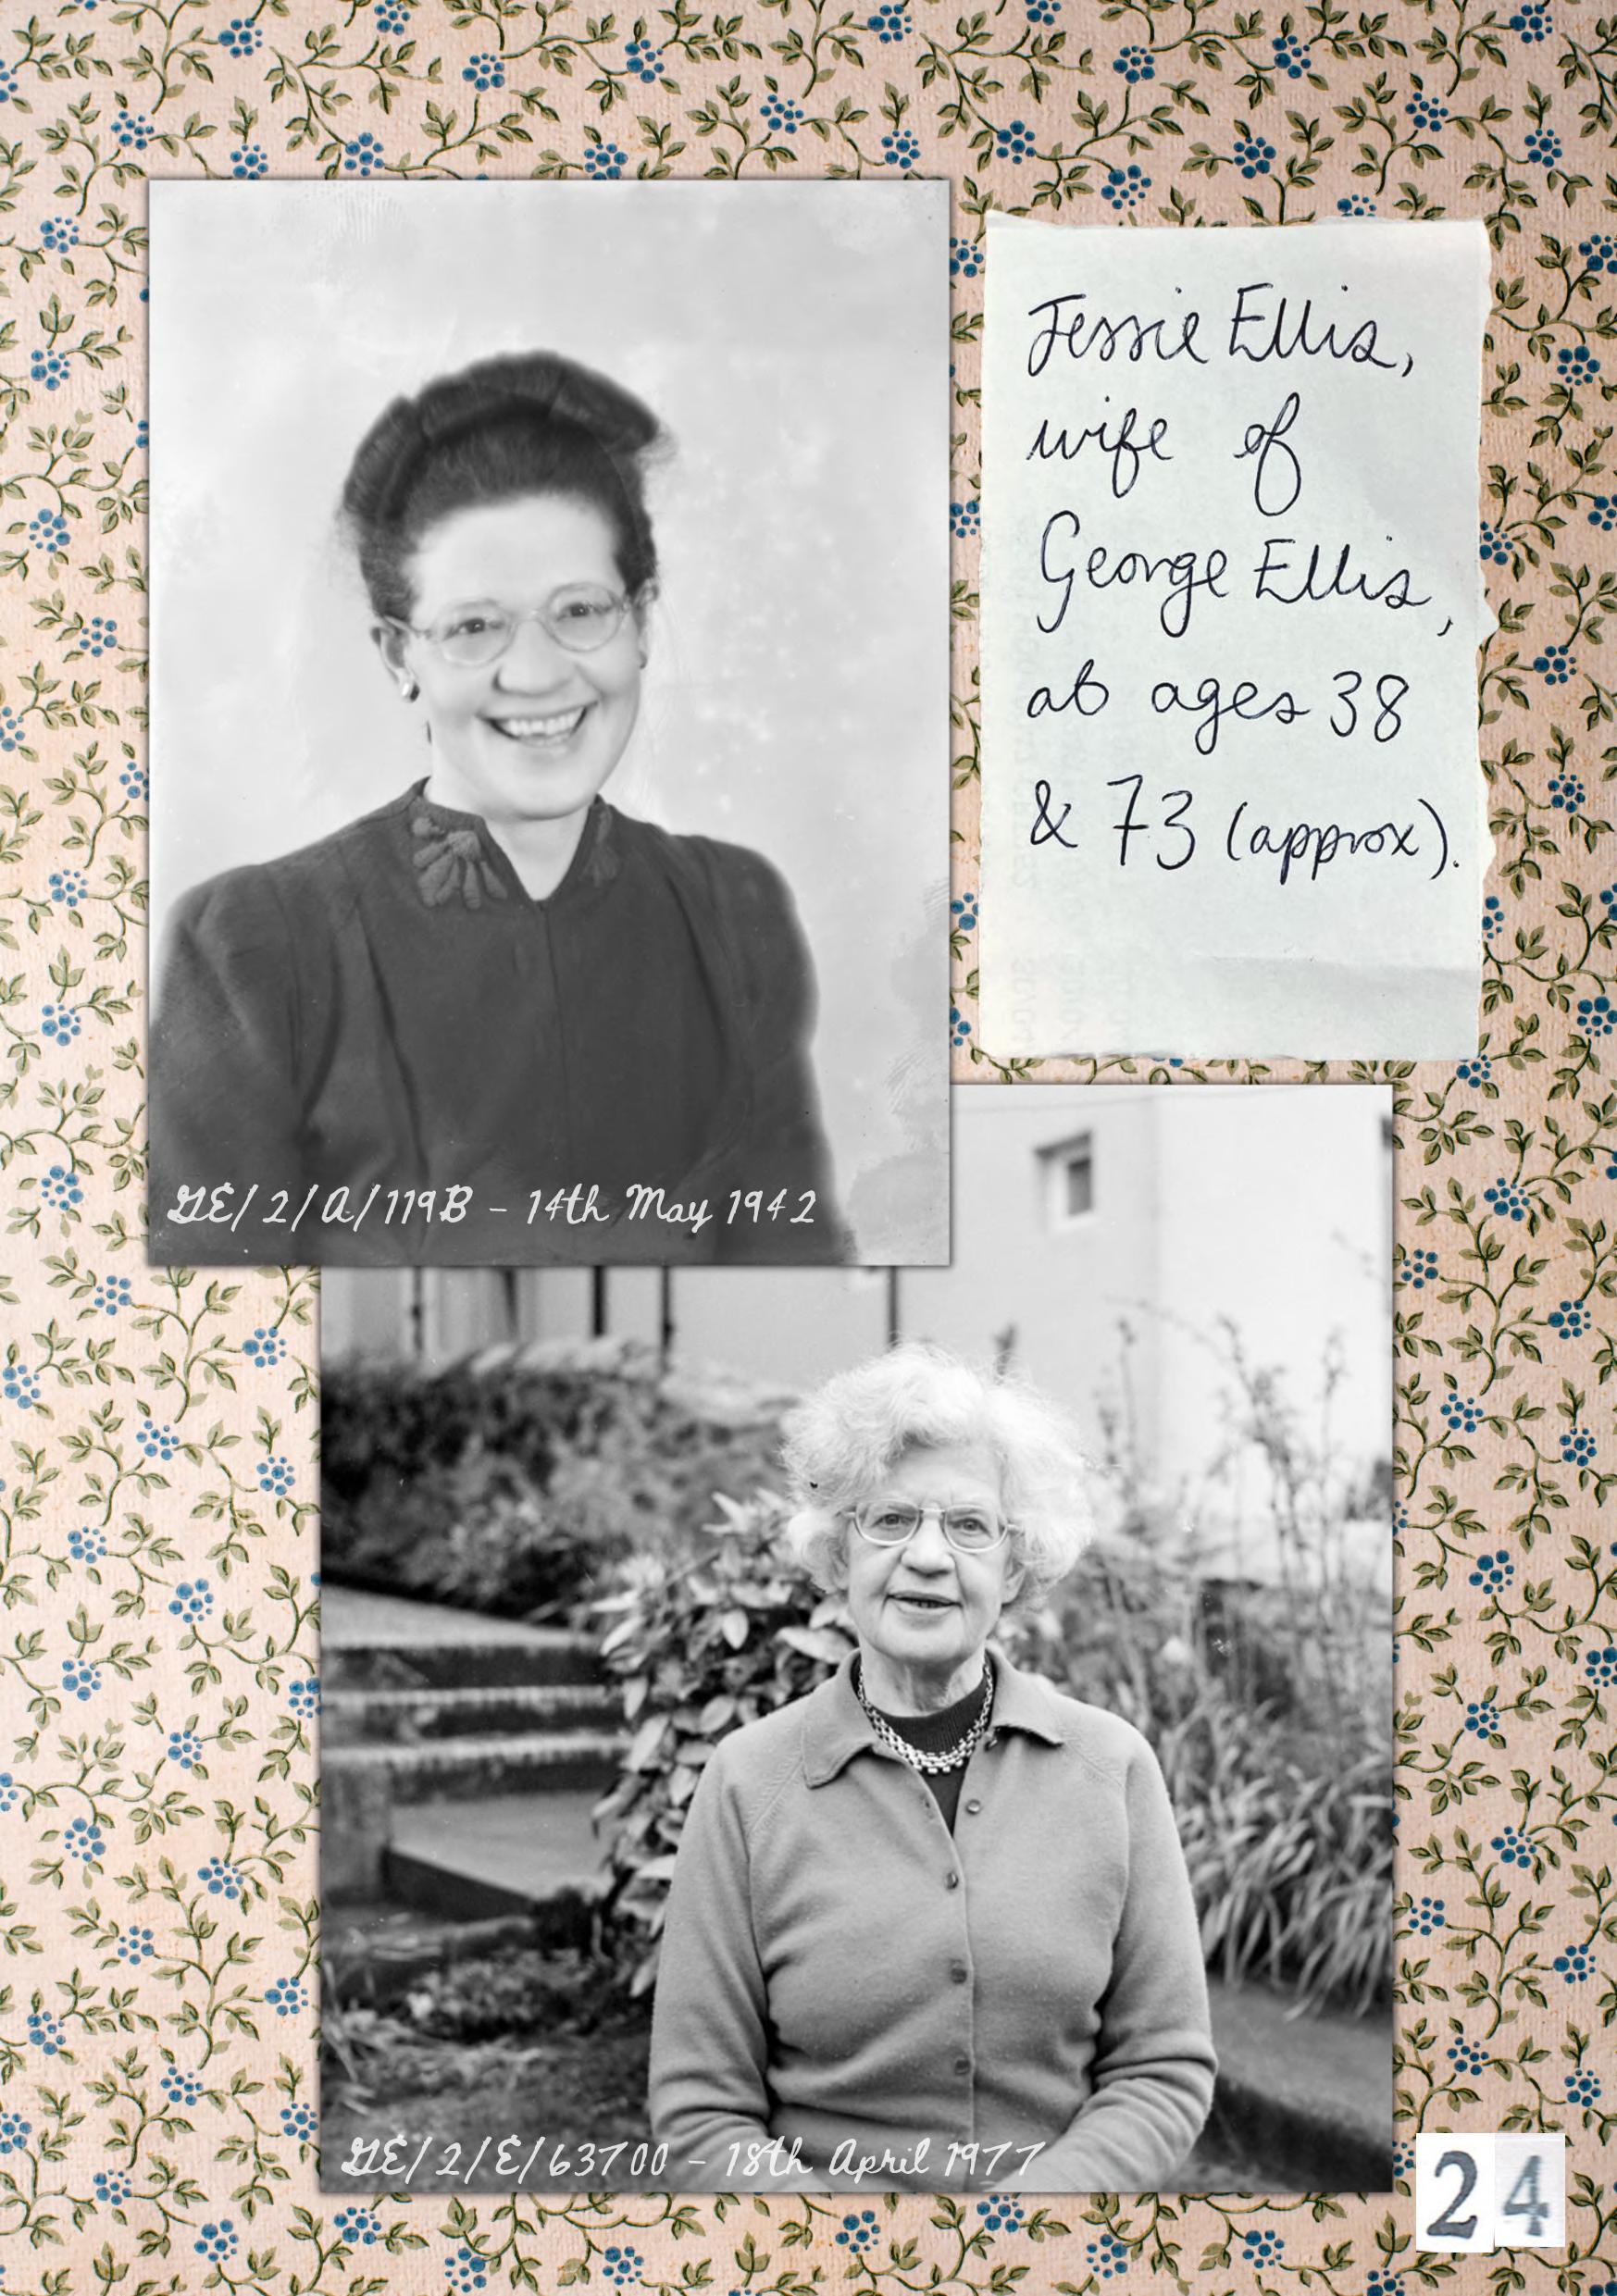 Jessie Ellis,
wife of
George Ellis,
at ages 38
& 73 (approx).
GE/2/A/119B - 14th May 1942
GE/2/E/63700 - 18th April 1977
24